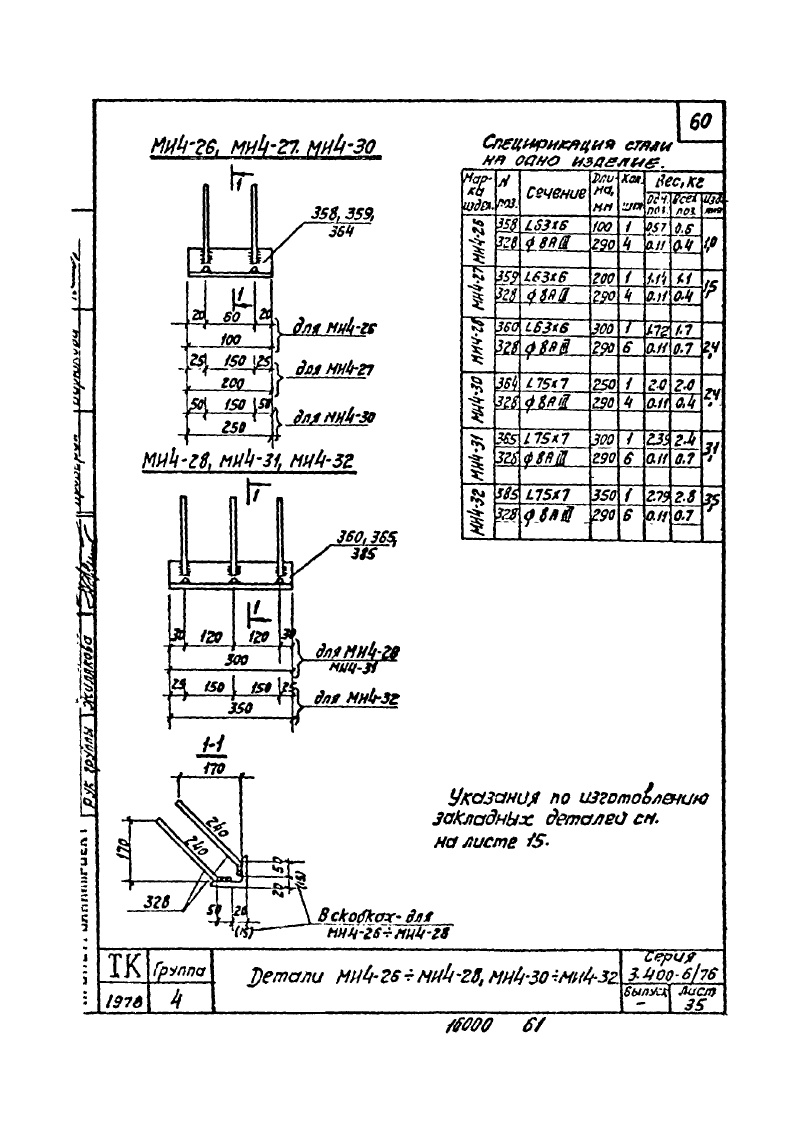 60
МИ4-26, МИ4-27. МИ4-30
1
358, 359,
364
1
20 60 20
100
для МИ4-26
25 150 25
200
для МИ4-27
50 150 50
250
для МИ4-30
МИ4-28, МИ4-31, МИ4-32
1
360, 365,
385
1
30 120 120 30
300
для МИ4-28
МИ4-31
25 150 150 25
350
для МИ4-32
1-1
170
240
240
170
328
50 20
(15)
50
20 (15)
В скобках - для
МИ4-26÷МИ4-28
Спецификация стали
на одно изделие.
Марка издел. N поз. Сечение Длина, мм Кол. шт. Вес, кг
Одн. поз. Всех поз. Изделия
МИ4-26 358 L63х6 100 1 0.57 0.6 1,0
328 ф8АIII 290 4 0.11 0.4
МИ4-27 359 L63х6 200 1 1.14 1.1 1,5
328 ф8АIII 290 4 0.11 0.4
МИ4-28 360 L63х6 300 1 1.72 1.7 2,4
328 ф8АIII 290 6 0.11 0.7
МИ4-30 364 L75х7 250 1 2.0 2.0 2,4
328 ф8АIII 290 4 0.11 0.4
МИ4-31 365 L75х7 300 1 2.39 2.4 3,1
328 ф8АIII 290 6 0.11 0.7
МИ4-32 385 L75х7 350 1 2.79 2.8 3,5
328 ф8АIII 290 6 0.11 0.7
Указания по изготовлению
закладных деталей см.
на листе 15.
Рук. группы Жилякова
Проверил
ТК
1978
Группа
4
Детали МИ4-26÷МИ4-28, МИ4-30÷МИ4-32
Серия
3.400-6/76
Выпуск
-
Лист
35
16000 61